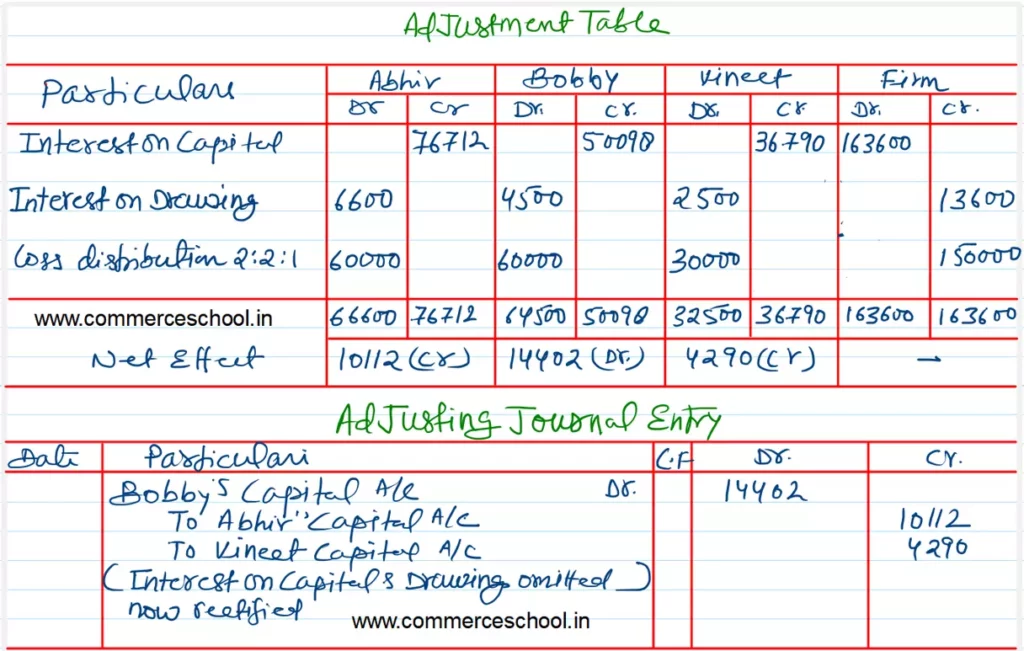 AdJustment Table
Particulars Abhir Bobby Vineet Firm
Dr Cr Dr. Cr. Dr. Cr Dr. Cr.
Interest on Capital 76712 50098 36790 163600
Interest on Drawing 6600 4500 2500 13600
Loss distribution 2:2:1 60000 60000 30000 150000
www.commerceschool.in 66600 76712 64500 50098 32500 36790 163600 163600
Net Effect 10112 (Cr) 14402 (Dr.) 4290 (Cr) —
AdJusting Journal Entry
Date Particulars L.F Dr. Cr.
Bobby's Capital A/c Dr. 14402
To Abhir" Capital A/C 10112
To Vineet Capital A/C 4290
(Interest on Capital & Drawing omitted)
now rectified
www.commerceschool.in